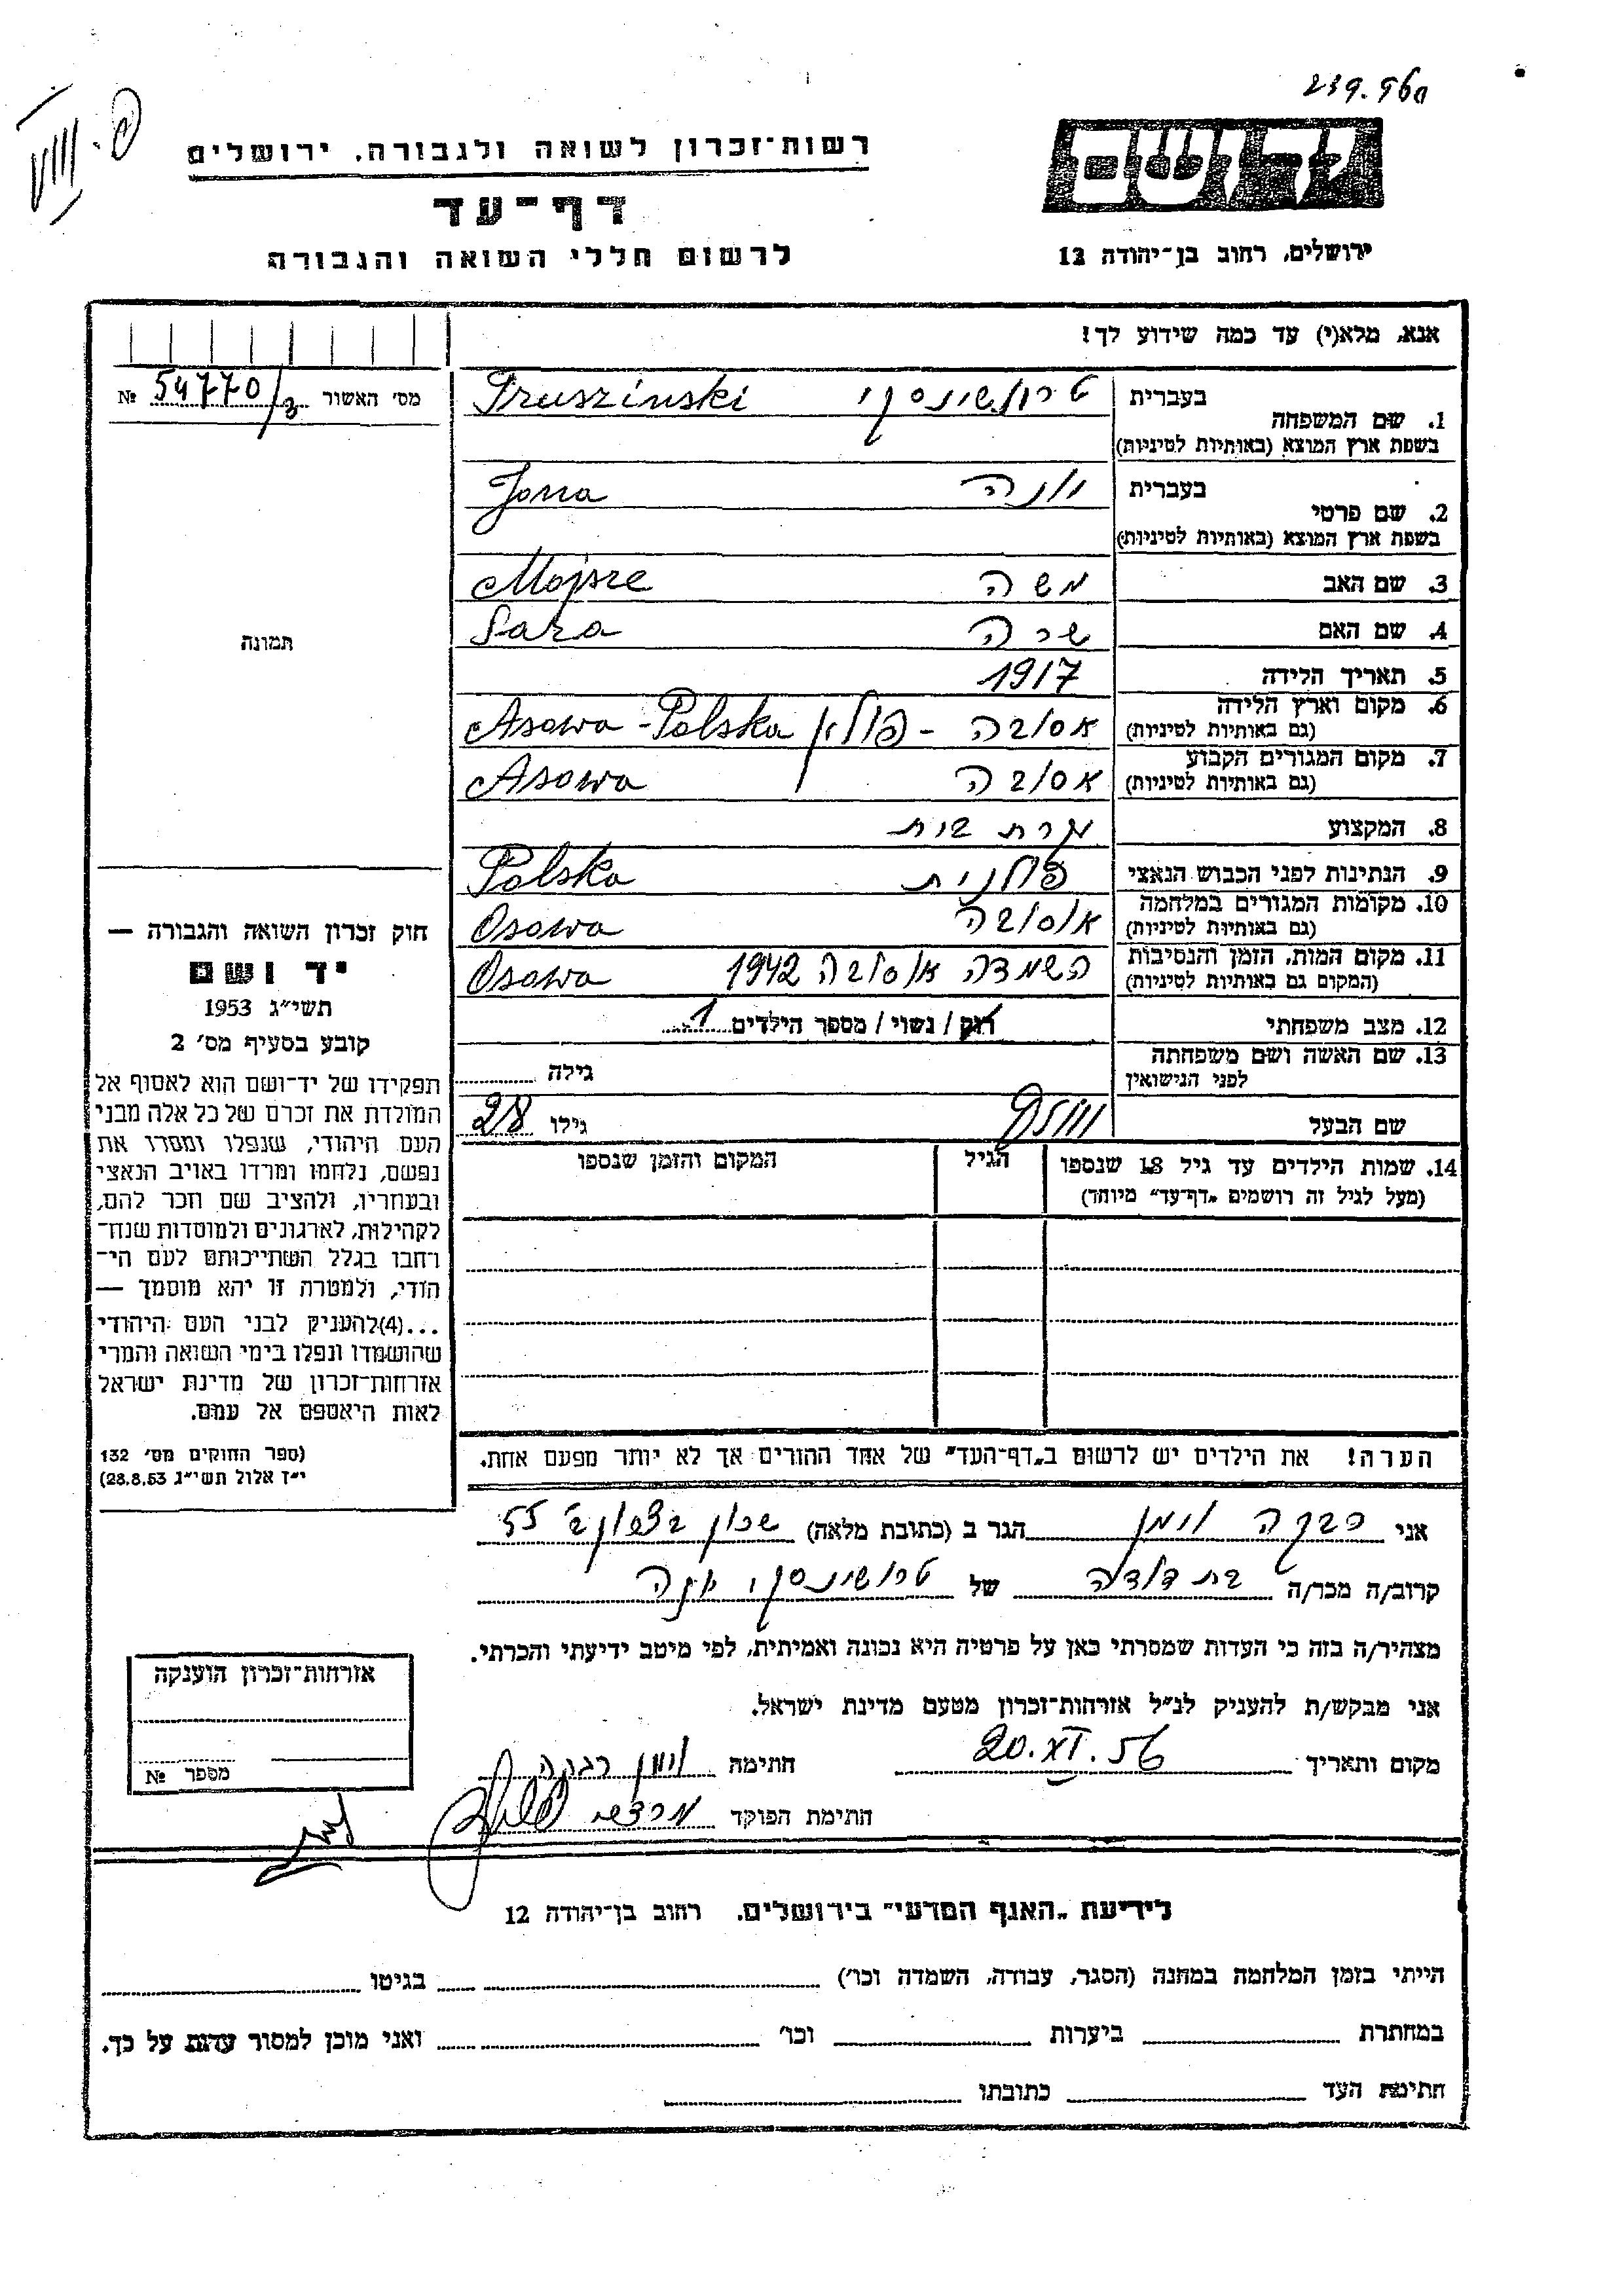 239.960
רשות־זכרון לשואה ולגבורה, ירושלים
דף־עד
לרשום חללי השואה והגבורה
יד ושם
ירושלים, רחוב בן־יהודה 12
אנא, מלא(י) עד כמה שידוע לך!
מס׳ האשור 54770/3 №
תמונה
1. שם המשפחה בעברית טרושינסקי Truszinski
בשפת ארץ המוצא (באותיות לטיניות)
2. שם פרטי בעברית יונה Jona
בשפת ארץ המוצא (באותיות לטיניות)
3. שם האב משה Mojsze
4. שם האם שרה Sara
5. תאריך הלידה 1917
6. מקום וארץ הלידה אסובה - פולין Asowa - Polska
(גם באותיות לטיניות)
7. מקום המגורים הקבוע אסובה Asowa
(גם באותיות לטיניות)
8. המקצוע עקרת בית
9. הנתינות לפני הכבוש הנאצי פולנית Polska
10. מקומות המגורים במלחמה אוסובה Osowa
(גם באותיות לטיניות)
11. מקום המות, הזמן והנסיבות השמדה אוסובה 1942 Osowa
(המקום גם באותיות לטיניות)
12. מצב משפחתי רוק / נשוי / מספר הילדים 1
13. שם האשה ושם משפחתה גילה
לפני הנישואין
שם הבעל גילו 28
14. שמות הילדים עד גיל 18 שנספו הגיל המקום והזמן שנספו
(מעל לגיל זה רושמים „דף־עד״ מיוחד)
הערה! את הילדים יש לרשום ב„דף־העד״ של אחד ההורים אך לא יותר מפעם אחת.
חוק זכרון השואה והגבורה —
יד ושם
תשי״ג 1953
קובע בסעיף מס׳ 2
תפקידו של יד־ושם הוא לאסוף אל
המולדת את זכרם של כל אלה מבני
העם היהודי, שנפלו ומסרו את
נפשם, נלחמו ומרדו באויב הנאצי
ובעוזריו, ולהציב שם וזכר להם,
לקהילות, לארגונים ולמוסדות שנח־
רחבו בגלל השתייכותם לעם הי־
הודי, ולמטרה זו יהא מוסמך —
...(4) להעניק לבני העם היהודי
שהושמדו ונפלו בימי השואה והמרי
אזרחות־זכרון של מדינת ישראל
לאות היאספם אל עמם.
(ספר החוקים מס׳ 132
י״ז אלול תשי״ג 28.8.53)
אני רבקה וימן הגר ב (כתובת מלאה) שכון 55
קרוב/ה מכר/ה בת דודה של טרושינסקי יונה
מצהיר/ה בזה כי העדות שמסרתי כאן על פרטיה היא נכונה ואמיתית, לפי מיטב ידיעתי והכרתי.
אני מבקש/ת להעניק לנ״ל אזרחות־זכרון מטעם מדינת ישראל.
מקום ותאריך 20.XI.56 חתימה וימן רבקה
חתימת הפוקד מרדכי
אזרחות־זכרון הוענקה
מספר №
לידיעת „האגף המדעי״ בירושלים. רחוב בן־יהודה 12
הייתי בזמן המלחמה במחנה (הסגר, עבודה, השמדה וכו׳) בגיטו
במחתרת ביערות וכו׳ ואני מוכן למסור עדות על כך.
חתימת העד כתובתו